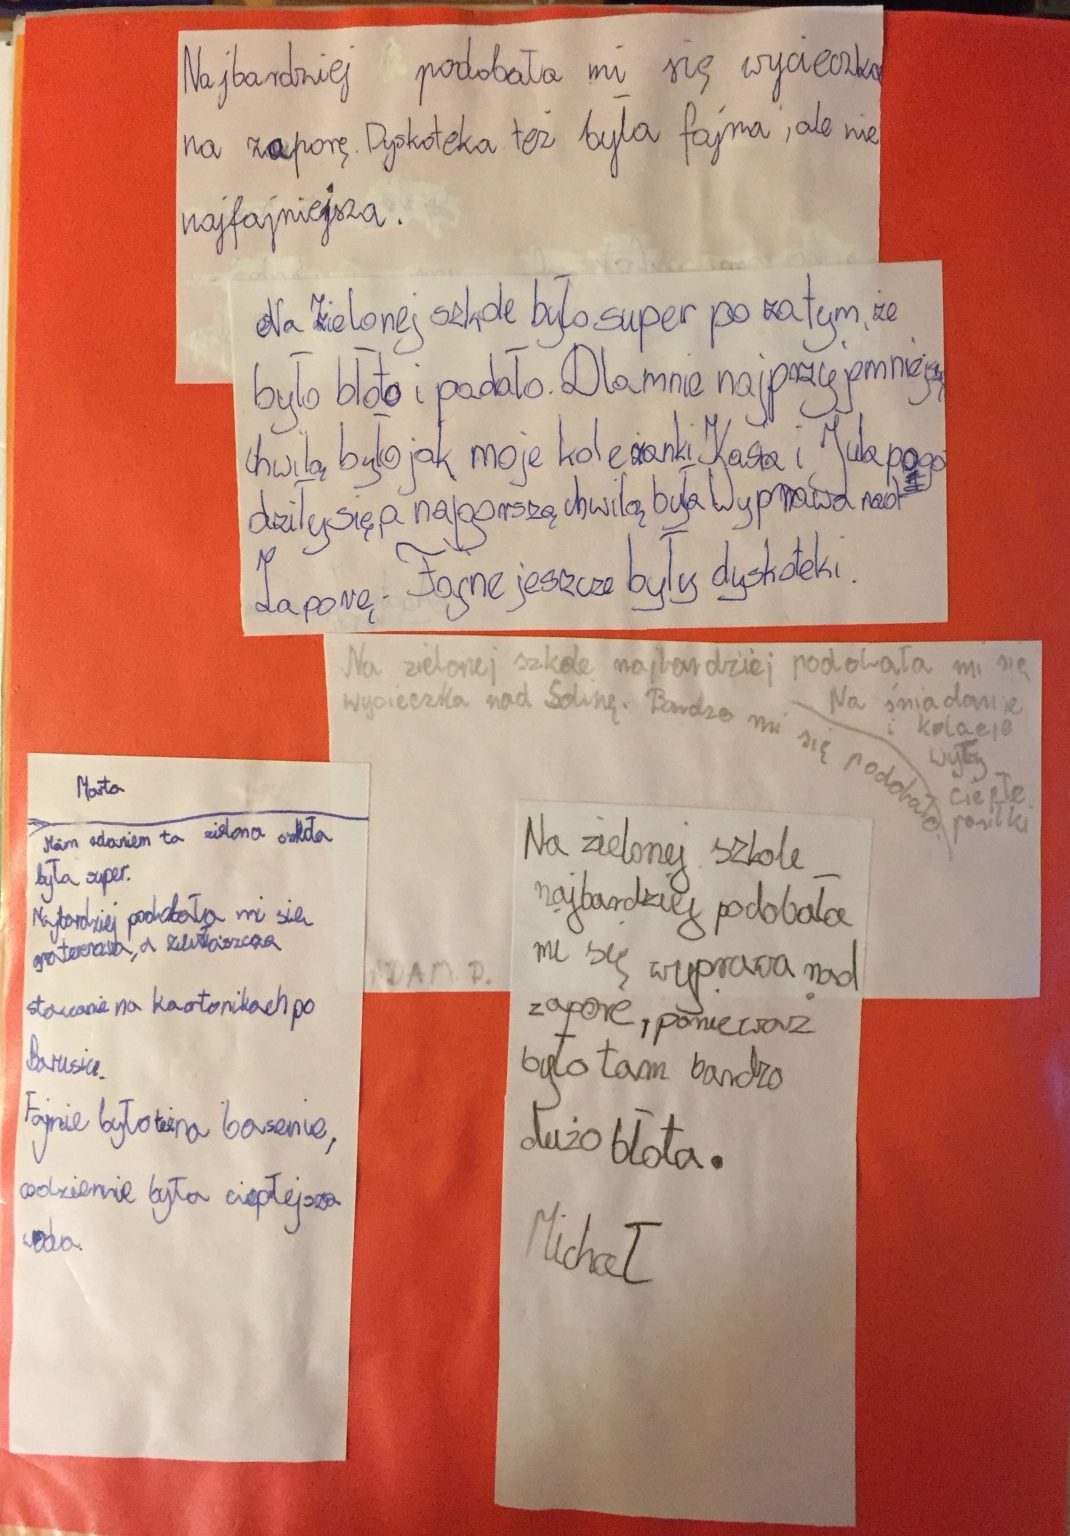 Najbardziej podobała mi się wycieczka
na zaporę. Dyskoteka też była fajna, ale nie
najfajniejsza.
Na Zielonej szkole było super po zatym, że
było błoto i padało. Dla mnie najprzyjemniejszą
chwilą było jak moje koleżanki Kasia i Jula pogo
dziły się, a najgorszą chwilą była Wyprawa nad
Zaporę. Fajne jeszcze były dyskoteki.
Na zielonej szkole najbardziej podobała mi się
wycieczka nad Solinę. Bardzo mi się podobało
Na śniadanie
i kolacje
wyły
ciepłe
posiłki
ADAM. D.
Marta
zdaniem ta zielona szkoła
była super.
Najbardziej podobała mi się
a zwłaszcza
na kartonikach po
Fajnie było też na basenie,
codziennie była cieplejsza
woda.
Na zielonej szkole
najbardziej podobała
mi się wyprawa nad
zaporę, ponieważ
było tam bardzo
dużo błota.
Michał